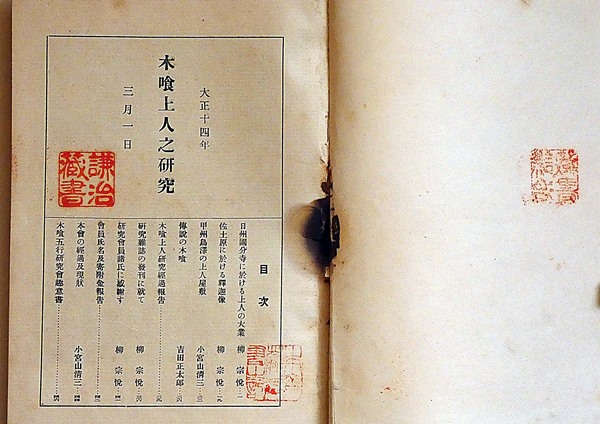 大正十四年
木喰上人之研究
三月一日
謙治
蔵書
目次
日州國分寺に於ける上人の大業 柳宗悦
佐土原に於ける釋迦像 柳宗悦
甲州鳥澤の上人屋敷 小宮山清三
傳說の木喰 吉田正太郎
木喰上人研究經過報告
研究雜誌の發刊に就て 柳宗悦
研究會員諸氏に感謝す 柳宗悦
會員氏名及寄附金報告
本會の經過及現狀 小宮山清三
木喰五行研究會趣意書